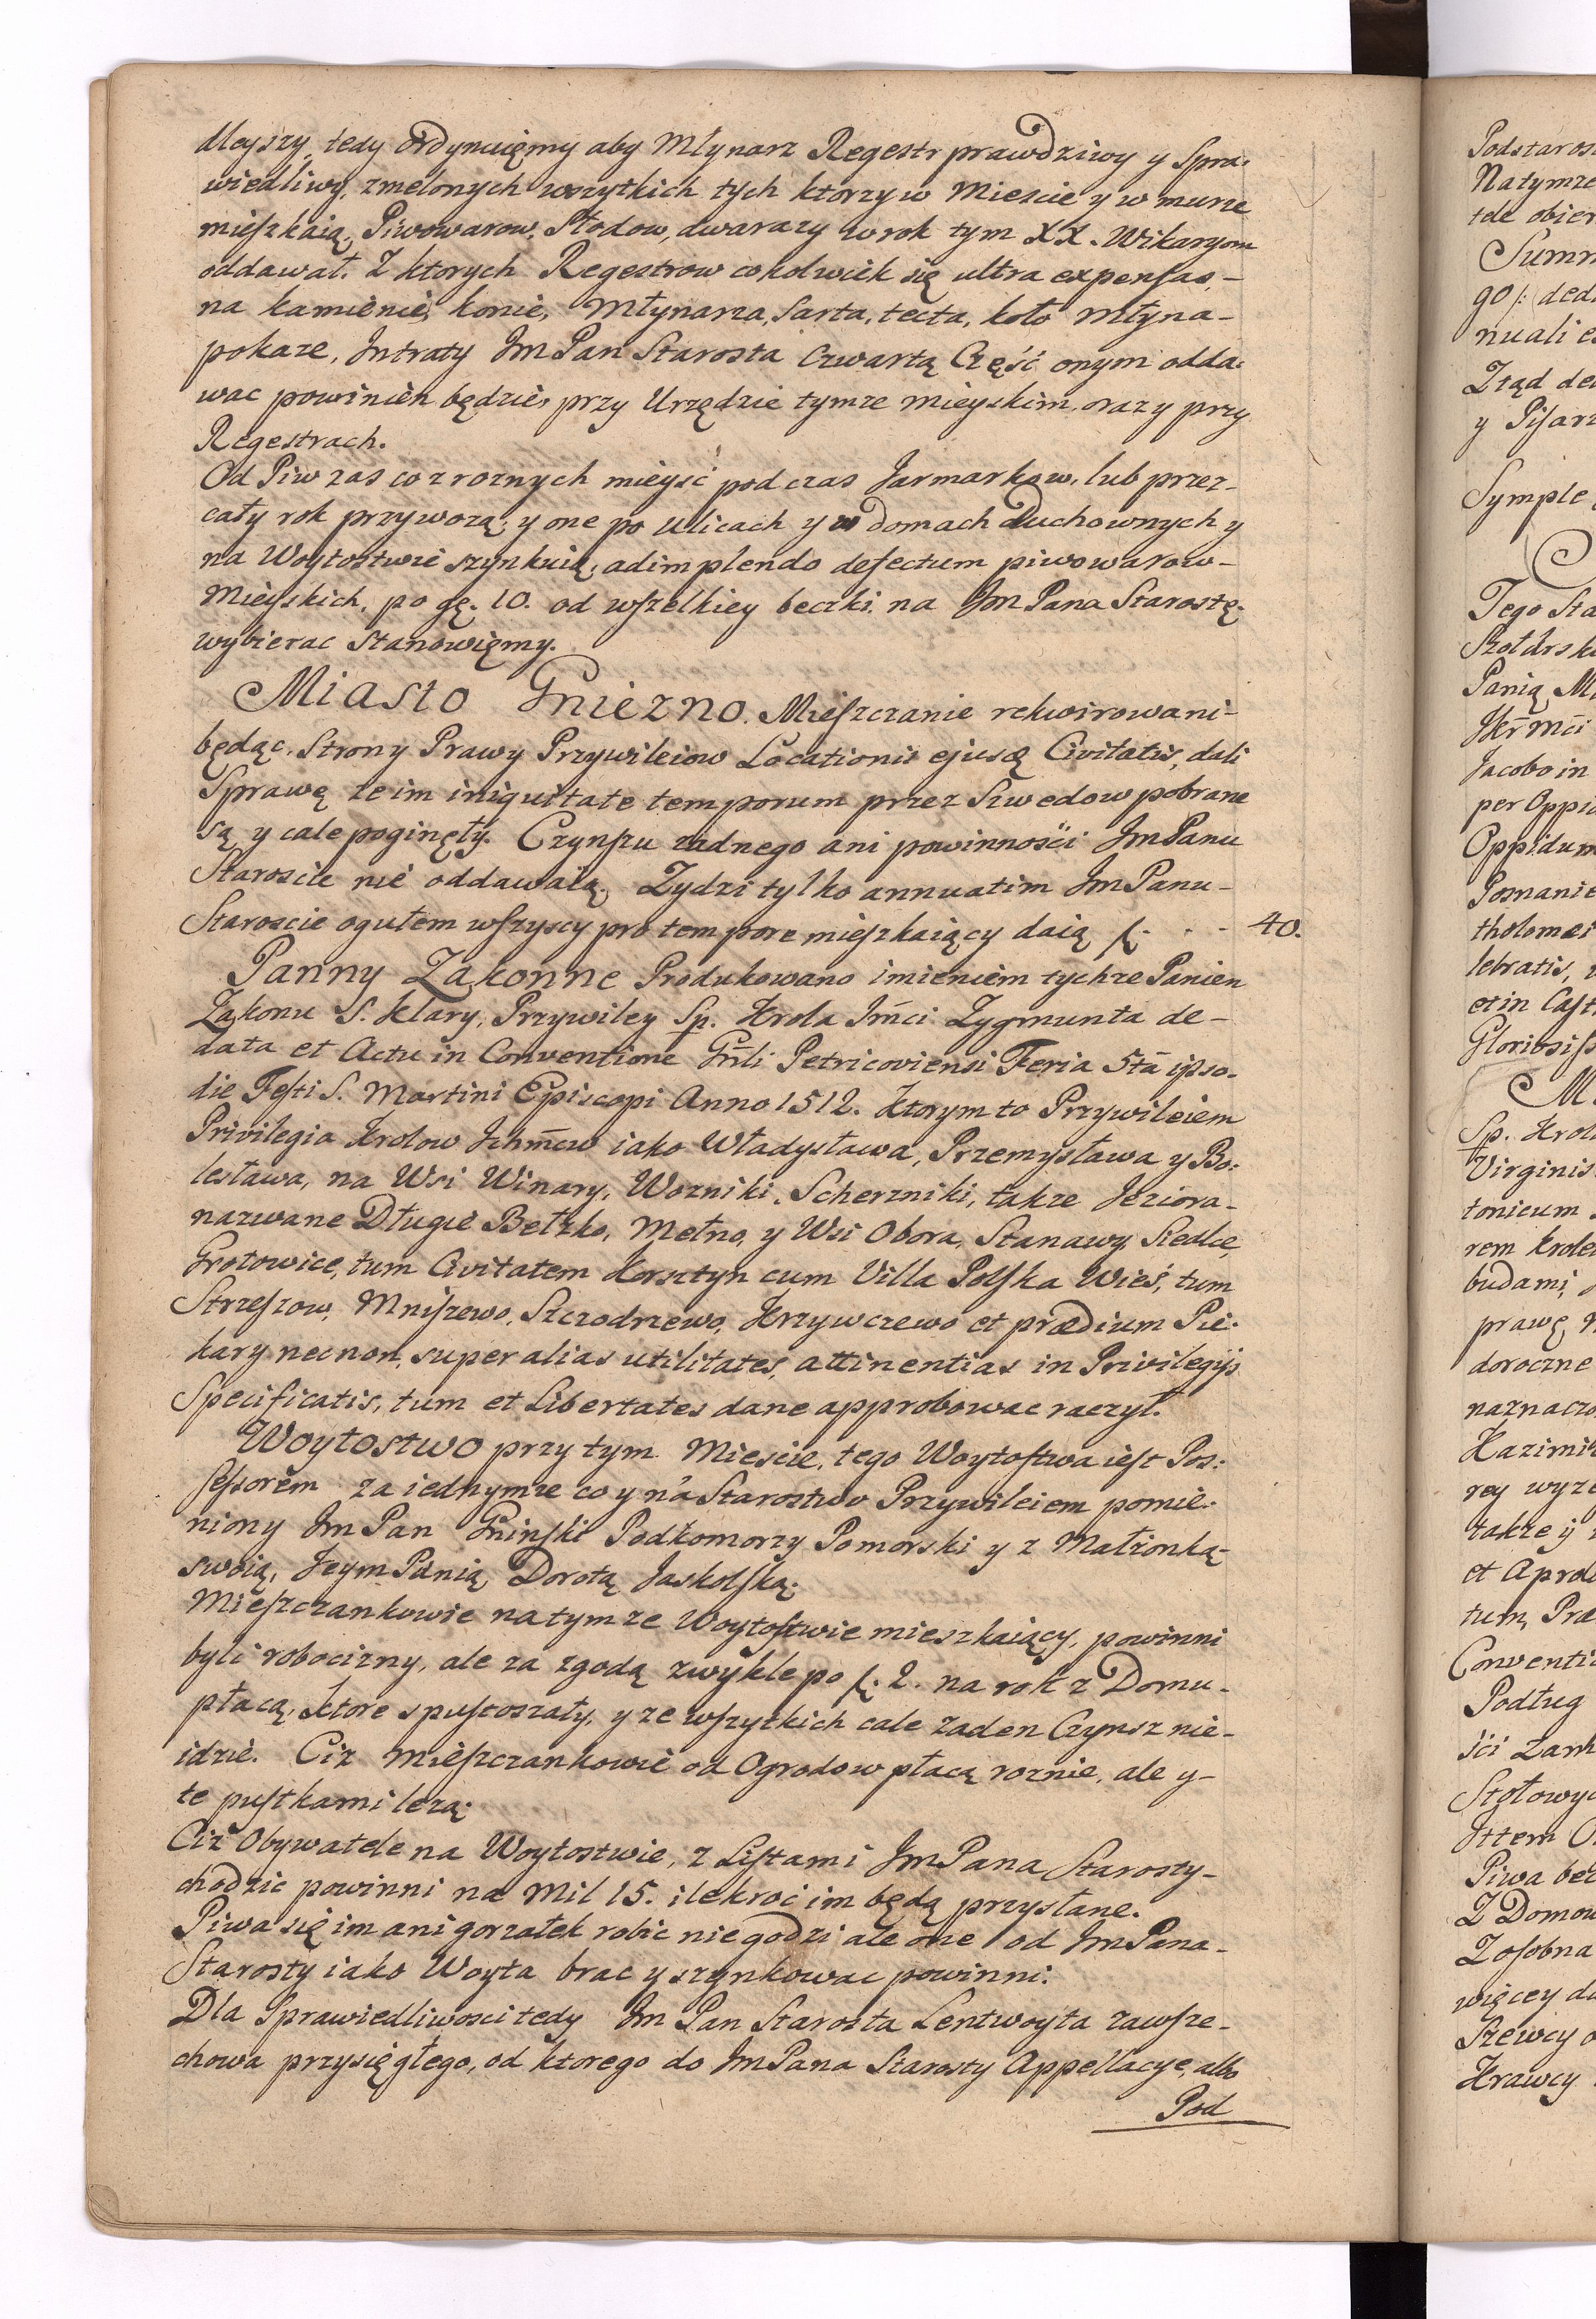 dleyszy, tedy Ordynuięmy aby Młynarz Regestr prawdziwy y Spra-
wiedliwy, zmelonych wszytkich tych ktorzy w Miescie y w murze
mieszkaią, Piwowarow, Słodow, dwa razy w rok tym XX. Wikaryom
oddawał. Z ktorych Regestrow cokolwiek się ultra expensas -
na kamienie, konie, Młynarza, Sarta, tecta, koło Młyna -
pokaze, Intraty Jm Pan Starosta Czwartą Częśc onym odda-
wac powinien będzie, przy Urzędzie tymze mieyskim, oraz y przy
Regestrach.
Od Piw zas co z roznych mieysc pod czas Jarmarkow, lub przez -
cały rok przywozą, y one po Ulicach y w Domach Duchownych y
na Woytostwie szynkuią, adimplendo defectum piwowarow -
Mieyskich, po gę. 10. od wszelkiey beczki na Jm Pana Starostę
wybierac Stanowięmy.
Miasto Gniezno. Mieszczanie rekwirowani -
będąc, Strony Prawy Przywileiow Locationis ejusq Civitatis, dali
Sprawę ze im iniquitate temporum przez Szwedow pobrane
są y cale poginęły. Czynszu zadnego ani powinności Jm Panu
Staroscie nie oddawaią. Zydzi tylko annuatim Jm Panu -
Staroscie ogułem wszyscy pro tempore mieszkaiący daią f. . . - 40.
Panny Zakonne Produkowano imieniem tychze Panien
Zakonu S. Klary, Przywiley Sp. Krola Jmci Zygmunta de -
data et Actu in Conventione Gnli Petricoviensi Feria 5ta ipso -
die Festi S. Martini Episcopi Anno 1512. Ktorym to Przywileiem
Privilegia Krolow Ichmcw iako Władysława, Przemysława y Bo-
lesława, na Wsi Winary, Wozniki, Scherzniki, takze Jeziora -
nazwane Długie Bełzko, Mełno, y Wsi Obora, Stanawy, Siedlce,
Grotowice, tum Civitatem Korsztyn cum Villa Polska Wieś, tum
Strzeszow, Mniszewo, Szczodrzewo, Krzywczewo et prædium Pie-
kary necnon, super alias utilitates, attinentias in Privilegijs
Specificatis, tum et Libertates dane approbowac raczył.
Woytostwo przy tym Miescie, tego Woytostwa iest Pos-
sessorem za iednymze co y na Starostwo Przywileiem pomie-
niony Jm Pan Gninski Podkomorzy Pomorski y z Małzonką
swoią, Jeym Panią Dorotą Jaskolską.
Mieszczankowie na tymze Woytostwie mieszkaiący, powinni
byli robocizny, ale za zgodą zwykle po f. 2. na rok z Domu -
płacą, ktore spustoszały, y ze wszytkich cale zaden Czynsz nie -
idzie. Ciz Mieszczankowie od Ogrodow płacą roznie, ale y -
te pustkami lezą.
Ciz Obywatele na Woytostwie, z Listami Jm Pana Starosty -
chodzic powinni na Mil 15. ilekroc im będą przysłane.
Piwa się im ani gorzałek robic nie godzi ale one od Jm Pana -
Starosty iako Woyta brac y szynkowac powinni.
Dla Sprawiedliwosci tedy Jm Pan Starosta Lentwoyta zawsze -
chowa przysięgłego, od ktorego do Jm Pana Starosty Appellacye, albo
Pod